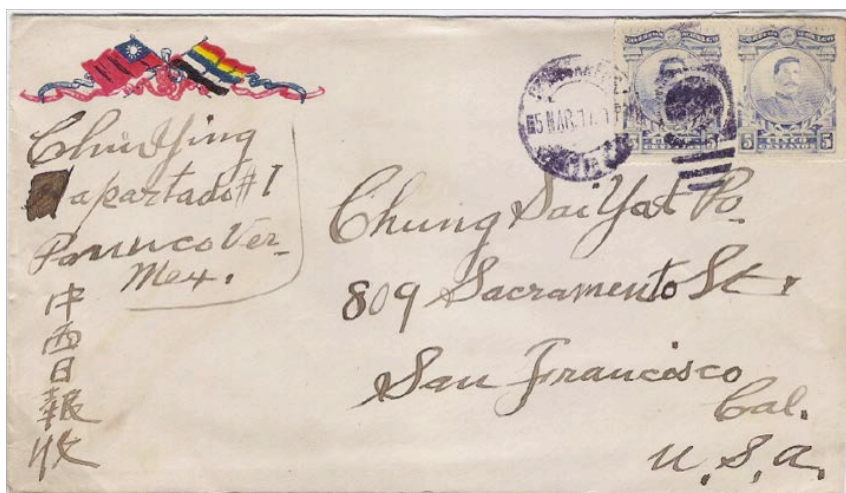 Chu Ying
apartado #1
Panuco Ver.
Mex.
中
西
日
報
收
5 MAR. 17
5
5
Chung Sai Yat Po
809 Sacramento St.
San Francisco
Cal.
U.S.A.